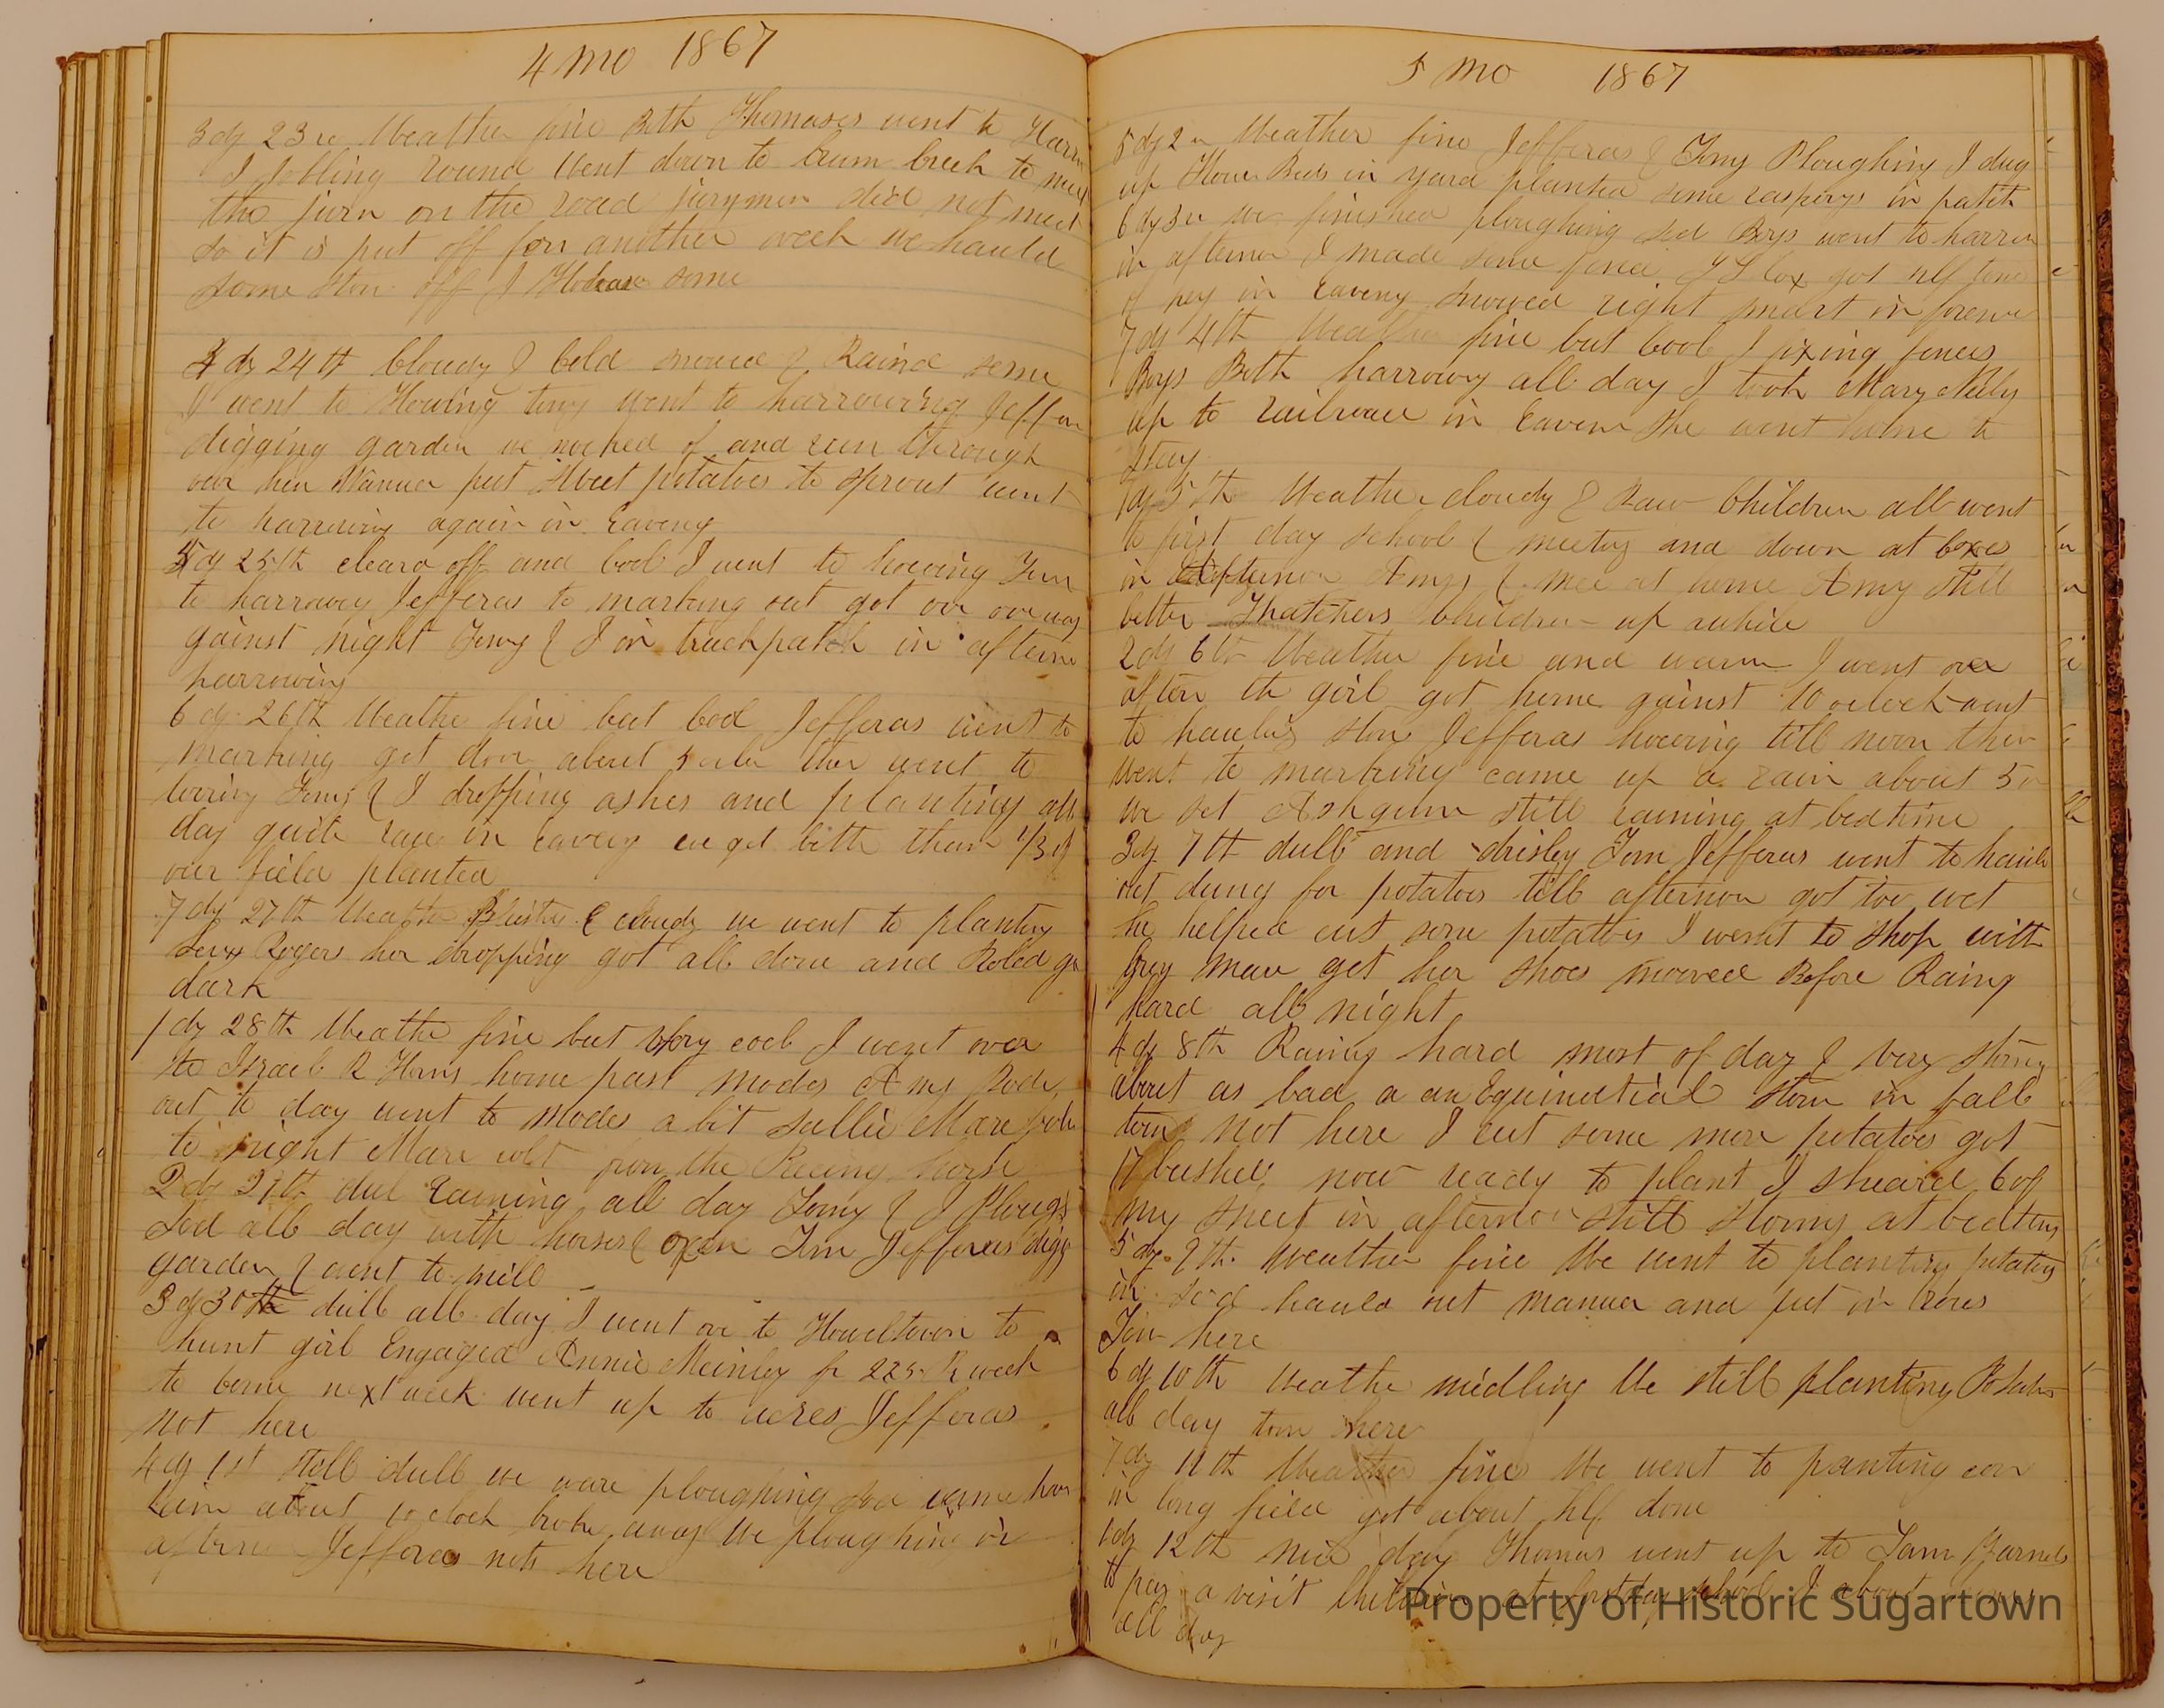 4 mo 1867
3 dy 23 Weather fine Both Thomases went to
I Jobling round Went down to Crum Creek to meet
the jury on the road jurymen did not meet
so it is put off for another week we hauld
some Ston off I some
4 dy 24th Cloudy & Cold snowed & Raind some
I went to Howing tomy went to harrowring Jeffer
digging garden we of and run through
our hen Manuer put Sweet potatoes to sprout went
to harrowing again in Eaveng
5 dy 25th cleard off and Cool I went to howing Tom
to harrowing Jefferas to marking out got over
gainst night Tomy & I in truckpatch in afterno
harrowing
6 dy 26th Weather fine but Cool Jefferas went to
marking got don about then went to
Tomy & I dropping ashes and planting all
day quite raw in Eaveng we got better than 1/3 of
our field planted
7 dy 27th Weather Bluster & cloudy we went to planting
Roger her dropping got all done and Roled
dark
1 dy 28th Weather fine but very cool I went over
to Israel R home past modes Amy Rode
out to day went to modes a bit Sallie Mare
to night Mare colt the Racing horse
2 dy 29th dul raining all day Tomy & I Ploug
Sod all day with horses & oxen Tom Jefferas digg
garden & went to mill
3 dy 30th dull all day I went over to Howeltown to
hunt girl Engaged Annie Meinley for 225 Pr week
to come next week went up to acres Jefferas
not here
4 dy 1st still dull we ware ploughing Sod came
about 10 oclock broke away We ploughing in
afterno Jefferas not here
5 mo 1867
5 dy 2 Weather fine Jefferas & Tomy Ploughing I dug
up Flower Beds in yard planted some raspberys in patch
6 dy 3 we finished ploughing sod Boys went to harrow
in afternoon I made some fence got hlf tone
of hey in Eaveng snowed right smart in
7 dy 4th Weather fine but Cool I fixing fences
Boys Both harrowing all day I took Mary
up to railroad in Eaven She went home to
stay
1 dy 5th Weather cloudy & Raw Children all went
to first day school & meeting and down at Coxes
in Afternon Amy & mee at home Amy still
better Thatchers Children up awhile
2 dy 6th Weather fine and warm I went over
after th girl got home gainst 10 oclock went
to hauling ston Jefferas howing till noon then
went to marking came up a rain about 5
we set still raining at bedtime
3 dy 7th dull and drisley Tom Jefferas went to haul
out dung for potatoes till afternon got too wet
he helped cut some potatoes I went to shop with
Grey Mare get her shoes mooved Before Raing
hard all night
4 dy 8th Raining hard most of day & very stormy
about as bad a an Equinoctial Storm in fall
tom not here I cut some more potatoes got
17 bushels now ready to plant I sheared 6 of
my sheep in afternoon still Stormy at bedtim
5 dy 9th weather fine We went to planting potatoes
in sod hauld out manuer and put in rows
Tom here
6 dy 10th Weather midling We still planting Potatoes
all day tom here
7 dy 11th Weather fine We went to panting corn
in long field got about hlf done
1 dy 12th nice day Thomas went up to Sam
to pay a visit Children at firstday school I about
all day
Property of Historic Sugartown